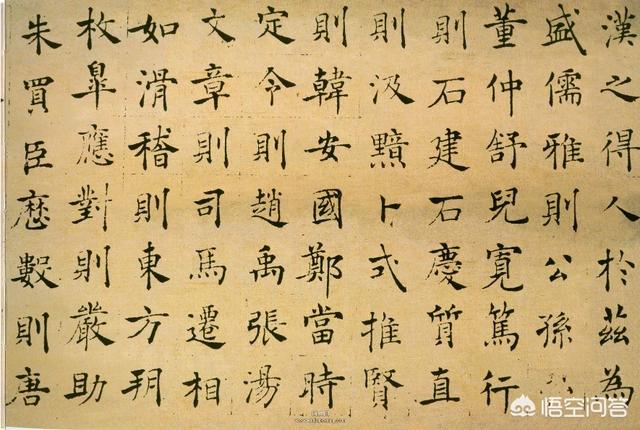 漢之得人於茲為
盛儒雅則公孫
董仲舒兒寬篤行
則石建石慶質直
則汲黯卜式推賢
則韓安國鄭當時
定令則趙禹張湯
文章則司馬遷相
如滑稽則東方朔
枚皐應對則嚴助
朱買臣歷數則唐
悟空问答